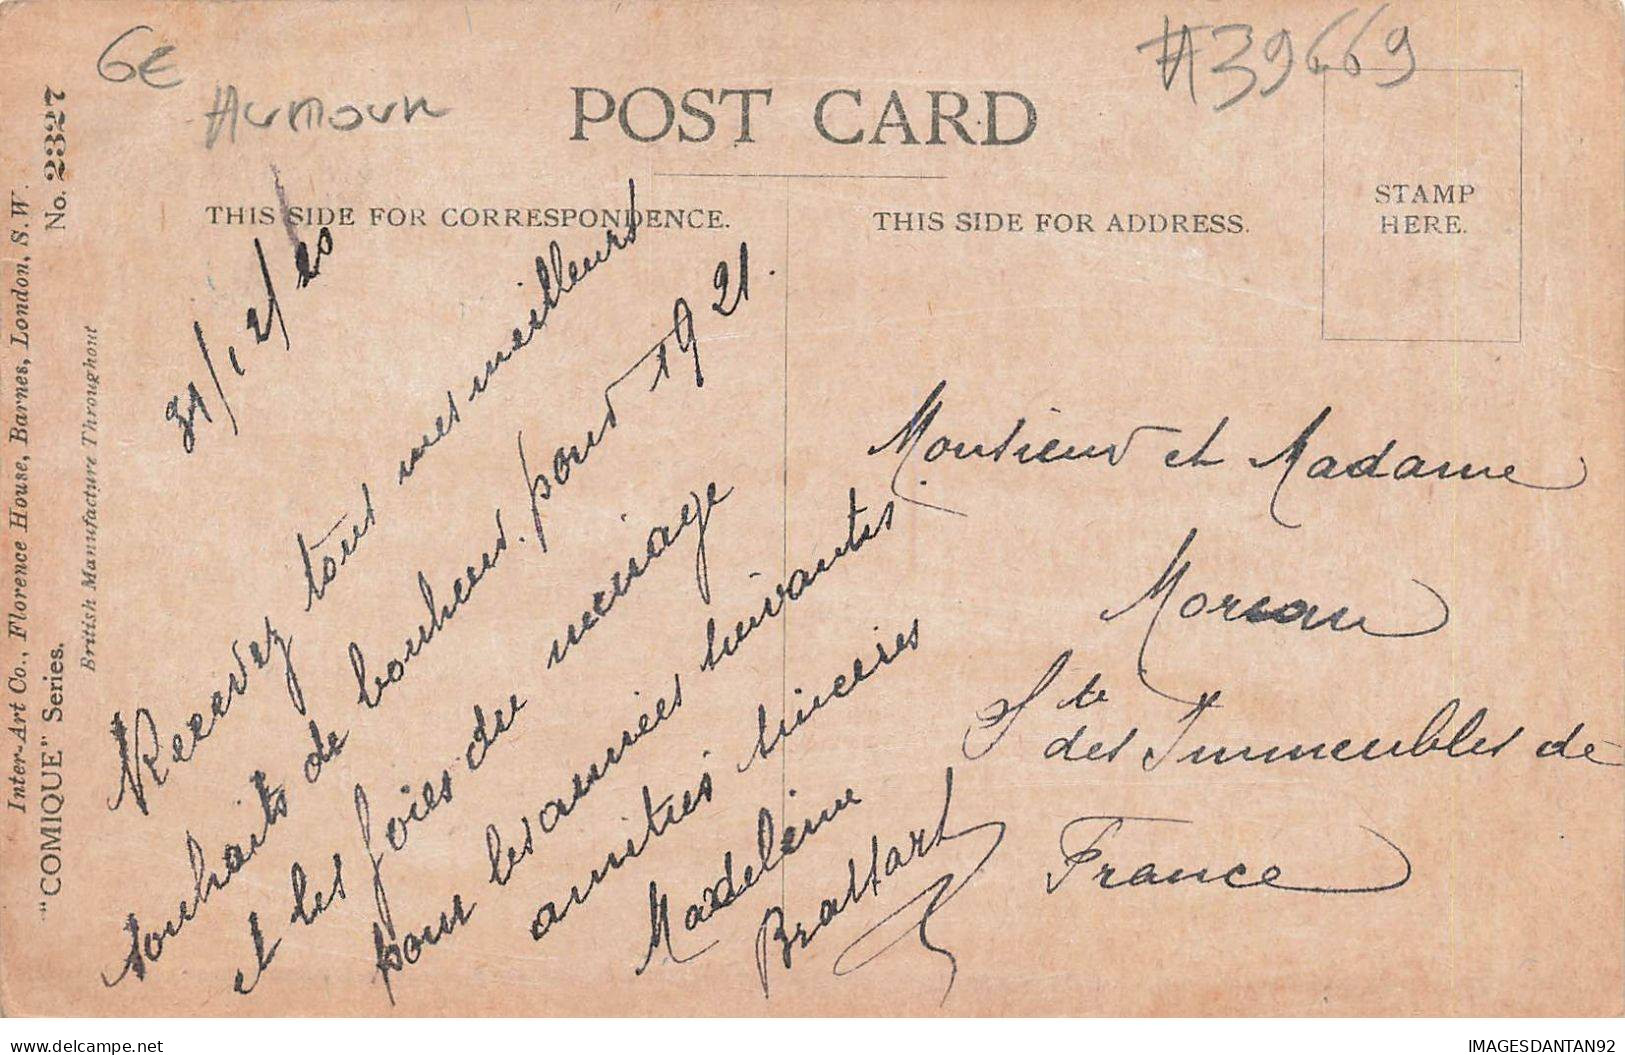 6€
Humour
#39669
POST CARD
THIS SIDE FOR CORRESPONDENCE.
THIS SIDE FOR ADDRESS.
STAMP
HERE.
Inter-Art Co., Florence House, Barnes, London, S.W.
"COMIQUE" Series.
No. 2327
British Manufacture Throughout
31/12/20
Recevez tous mes meilleurs
souhaits de bonheur pour 1921.
et les joies du ménage
pour les années suivantes.
amitiés sincères
Madeleine
Brassart
Monsieur et Madame
Moreau
Sté des Immeubles de
France
delcampe.net
IMAGESDANTAN92